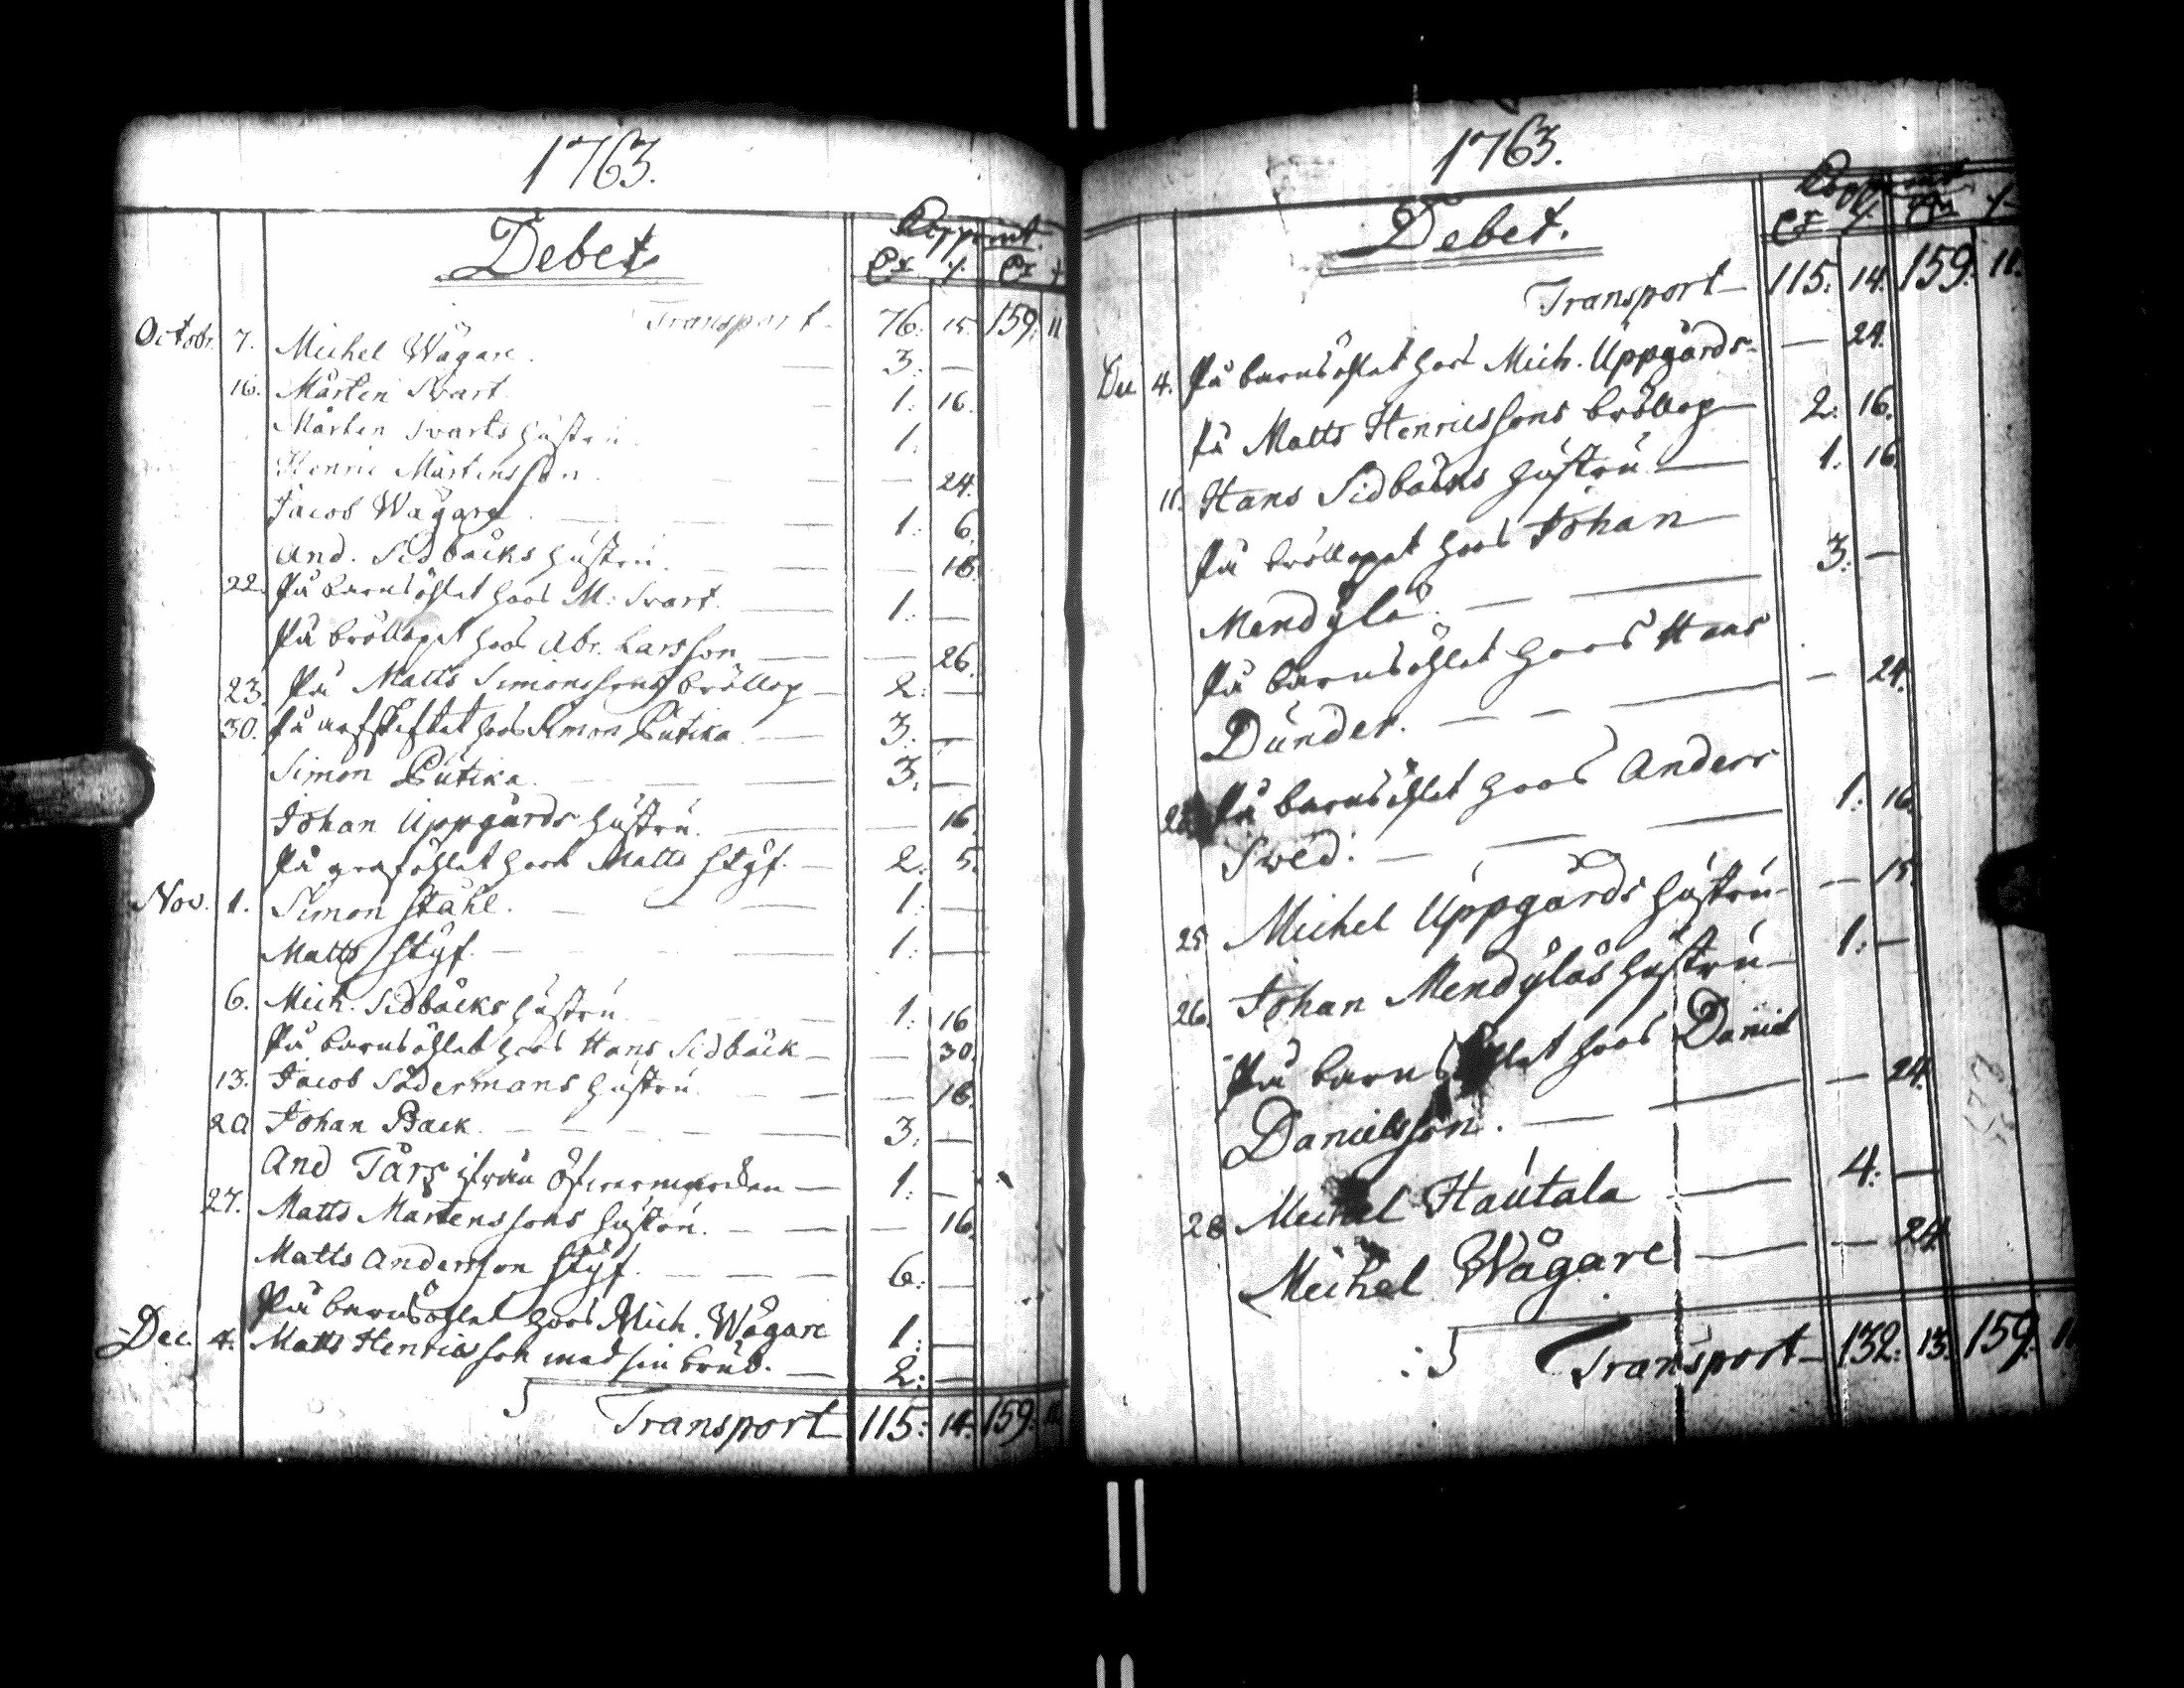 1763.
Debet
Kopp.mt.
Transport 76. 15. 159. 11
Octobr. 7. Michel Wågare. 3. —
16. Mårten Svart 1. 16.
Mårten Svarts hústrú 1.
Henric Mårtensson — 24.
Jacob Wågare 1. 6.
And. Sidbäcks hústrú. — 16.
22. På barnsöhlet hoos M: Svart. 1. —
På bröllopet hoos Abr. Larsson — 26.
23. På Matts Simonssons bröllop — 2. —
30. På arfskiftet hoos Simon Pútika. 3. —
Simon Pútika. 3. —
Johan Uppgårds hústrú. — 16.
På grafölet hoos Matts Styf. — 2. 5.
Nov. 1. Simon Ståhl. 1. —
Matts Styf. 1. —
6. Mich. Sidbäcks hústrú. 1. 16
På barnsöhlet hoos Hans Sidbäck — — 30.
13. Jacob Södermans hústrú — 16.
20 Johan Back. 3. —
And Tårs ifrån Östermarken — 1. —
27. Matts Mårtenssons hústrú. — 16.
Matts Andersson Styf. 6. —
På barnsöhlet hoos Mich. Wågare 1. —
Dec. 4. Matts Henricsson med sin brúd. — 2. —
Transport 115. 14. 159. 11
1763.
Debet.
Transport — 115. 14. 159. 11.
Dec 4. På barnsöhlet hos Mich. Uppgårds — — 24.
På Matts Henricssons bröllop — 2. 16.
11. Hans Sidbäcks hústrú — 1. 16.
På bröllopet hoos Johan —
Mendylä. — 3. —
På barnsöhlet hoos Hans
Dúnder. — — 24.
På barnsöhlet hoos Anders
Sved. — 1. 16.
25 Michel Uppgårds hústrú — — 15.
26. Johan Mendyläs hústrú — 1. —
På barnsöhlet hoos Daniel
Danielsson. — — 24.
28 Michel Haútala — 4. —
Michel Wågare — — 24.
Transport — 132. 13. 159. 11